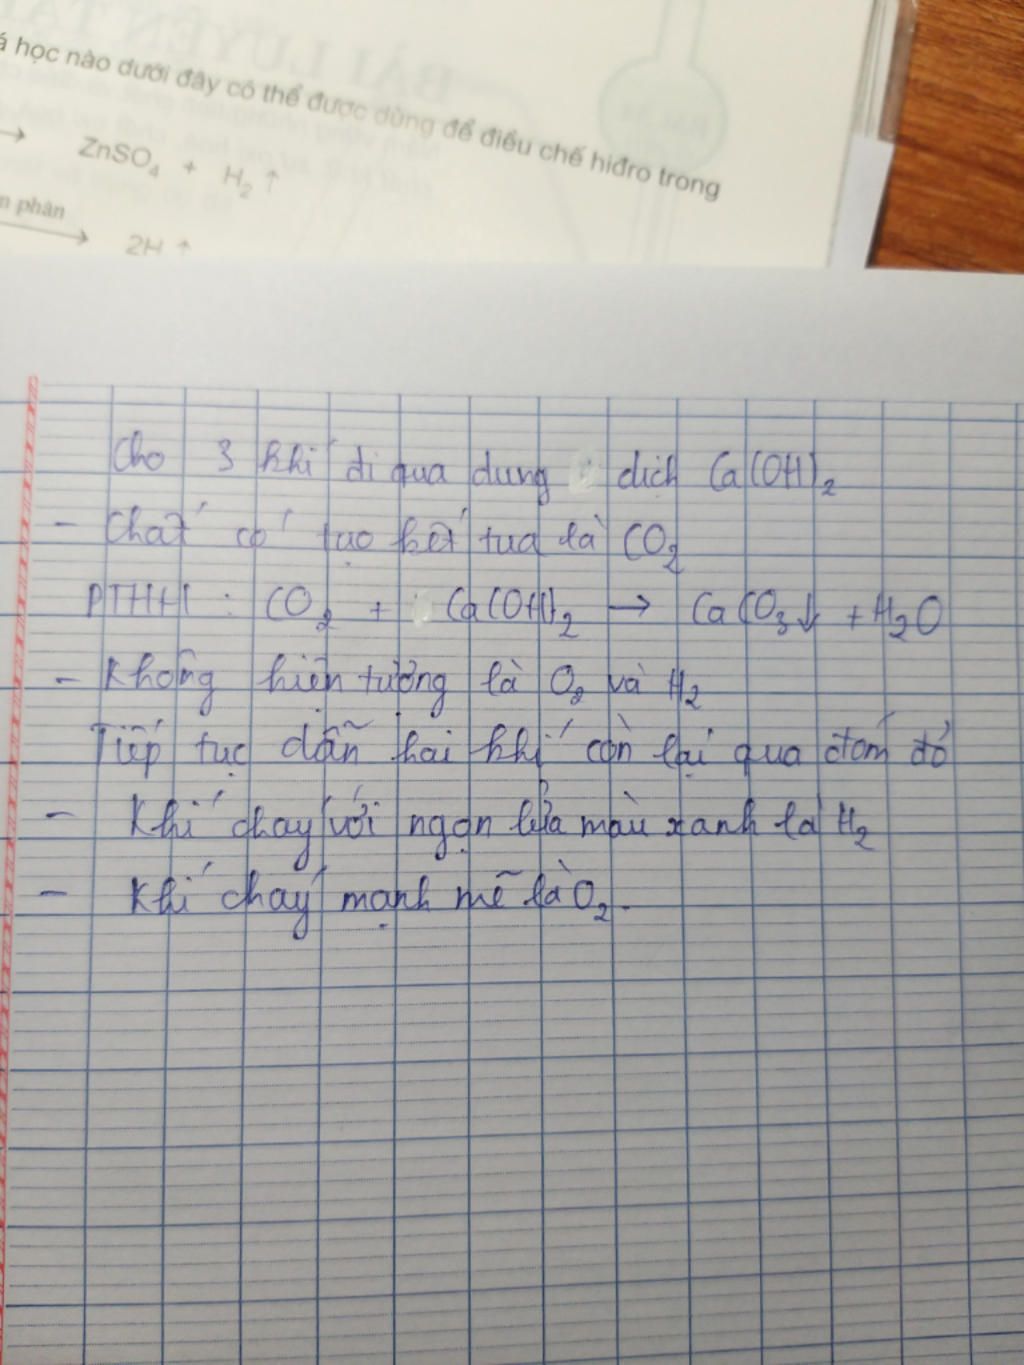 học nào dưới đây có thể được dùng để điều chế hiđro trong
→ ZnSO₄ + H₂ ↑
phân
→ 2H ↑
Cho 3 khí đi qua dung dịch Ca(OH)₂
- Chất có tạo kết tủa là CO₂
PTHH : CO₂ + Ca(OH)₂ → CaCO₃↓ + H₂O
- Không hiện tượng là O₂ và H₂
Tiếp tục dẫn hai khí còn lại qua đóm đỏ
- Khí cháy với ngọn lửa màu xanh là H₂
- Khí cháy mạnh mẽ là O₂.